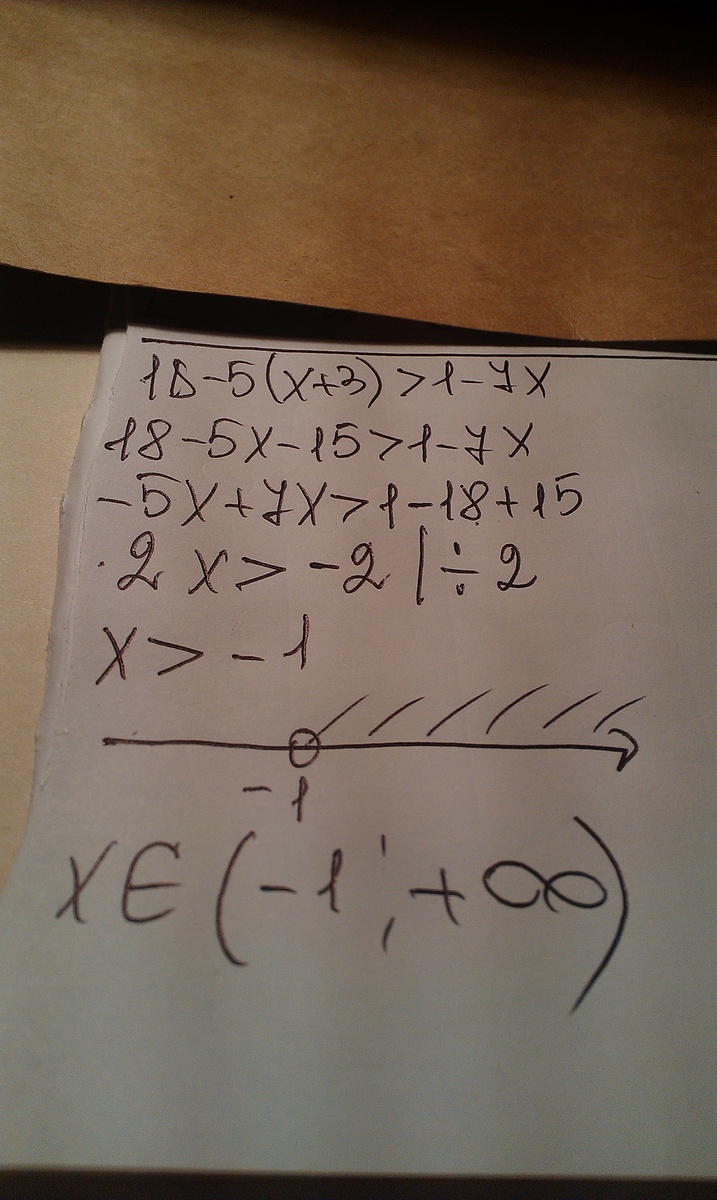 18-5(x+3)>1-7x
18-5x-15>1-7x
-5x+7x>1-18+15
2x>-2|÷2
x>-1
-1
x∈(-1;+∞)